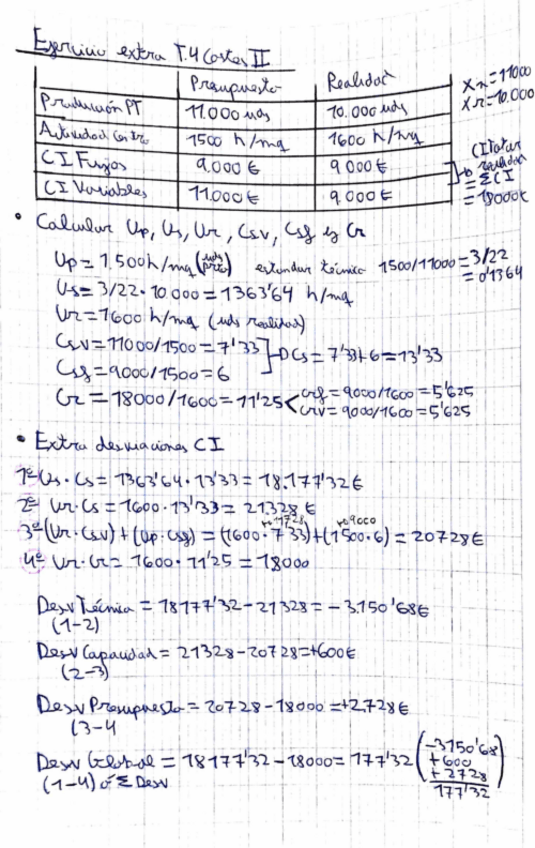 Ejercicio extra T.4 Costes II
Presupuesto Realidad
Producción PT 11.000 uds 10.000 uds
Actividad Centro 1500 h/mq 1600 h/mq
CI Fijos 9.000 € 9 000 €
CI Variables 11.000 € 9 000 €
Xn=11000
Xr=10.000
CI Total realidad
= Σ CI
= 18000€
• Calcular Up, Us, Ur, Csv, Csf y Cr
Up = 1.500 h/mq (uds pres) estandar técnico 1500/11000 = 3/22
= 0'1364
Us = 3/22 · 10.000 = 1363'64 h/mq
Ur = 1600 h/mq (uds realidad)
Csv = 11000/1500 = 7'33 Cs = 7'33 + 6 = 13'33
Csf = 9000/1500 = 6
Cr = 18000/1600 = 11'25 < Crf = 9000/1600 = 5'625
Crv = 9000/1600 = 5'625
• Extra desviaciones CI
1ª Us · Cs = 1363'64 · 13'33 = 18.177'32 €
2ª Ur · Cs = 1600 · 13'33 = 21328 €
11728 9000
3ª (Ur · Csv) + (Up · Csf) = (1600 · 7'33) + (1500 · 6) = 20728 €
4ª Ur · Cr = 1600 · 11'25 = 18000
Desv Técnica = 18177'32 - 21328 = - 3.150'68€
(1-2)
Desv Capacidad = 21328 - 20728 = +600€
(2-3)
Desv Presupuesto = 20728 - 18000 = +2.728€
(3-4
Desv Global = 18177'32 - 18000 = 177'32
(1-4) ó Σ Desv
-3150'68
+600
+2728
177'32